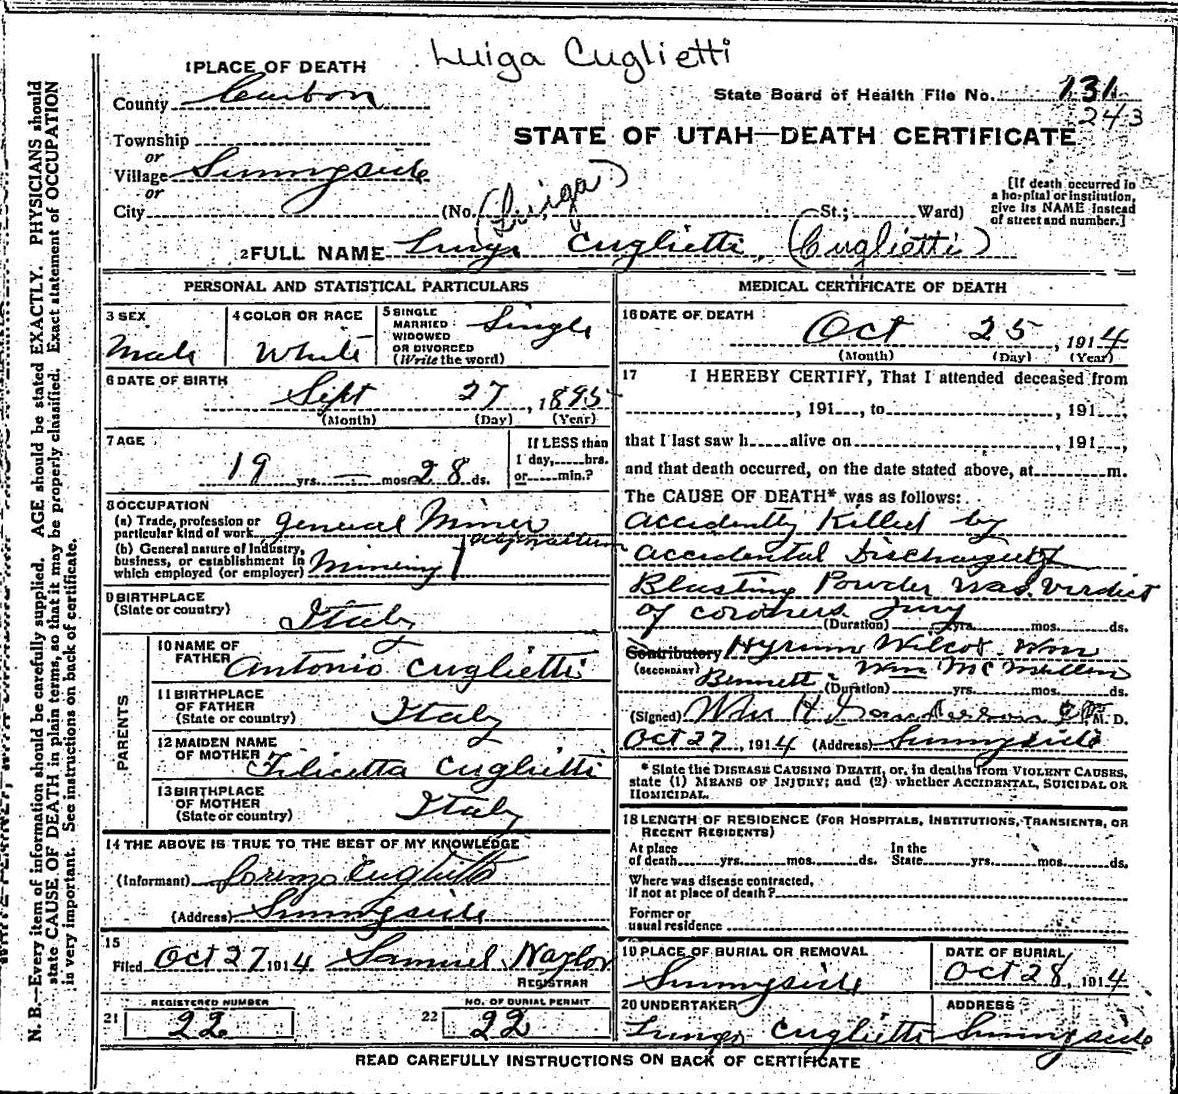 Luiga Cuglietti
1 PLACE OF DEATH
County Carbon
State Board of Health File No. 131
243
Township
or
Village Sunnyside
or
City
STATE OF UTAH—DEATH CERTIFICATE
(No. (Luiga) St.; Ward)
[If death occurred in a hospital or institution, give its NAME instead of street and number.]
2 FULL NAME Luiga Cuglietti (Cuglietti)
PERSONAL AND STATISTICAL PARTICULARS
3 SEX
Male
4 COLOR OR RACE
White
5 SINGLE MARRIED WIDOWED OR DIVORCED (Write the word)
Single
6 DATE OF BIRTH
Sept 27, 1895
(Month) (Day) (Year)
7 AGE
19 yrs. — mos 28 ds.
If LESS than 1 day, hrs. or min.?
8 OCCUPATION
(a) Trade, profession or particular kind of work general Miner
(b) General nature of industry, business, or establishment in which employed (or employer) Mining
9 BIRTHPLACE
(State or country)
Italy
PARENTS
10 NAME OF FATHER
Antonio Cuglietti
11 BIRTHPLACE OF FATHER
(State or country)
Italy
12 MAIDEN NAME OF MOTHER
Filicetta Cuglietti
13 BIRTHPLACE OF MOTHER
(State or country)
Italy
14 THE ABOVE IS TRUE TO THE BEST OF MY KNOWLEDGE
(Informant) Lorenzo Cuglietti
(Address) Sunnyside
15
Filed Oct 27 1914 Samuel Naylor
REGISTRAR
REGISTERED NUMBER
21 22
NO. OF BURIAL PERMIT
22 22
MEDICAL CERTIFICATE OF DEATH
16 DATE OF DEATH
Oct 25, 1914
(Month) (Day) (Year)
17 I HEREBY CERTIFY, That I attended deceased from
, 191 , to , 191 ,
that I last saw h alive on , 191 ,
and that death occurred, on the date stated above, at m.
The CAUSE OF DEATH* was as follows:
accidently Killed by
accidental Discharge of
Blasting Powder was verdict
of coroners Jury
(Duration) yrs. mos. ds.
Contributory Hyrum Wilcox Wm
(SECONDARY) Bennett & Wm McMullen
(Duration) yrs. mos. ds.
(Signed) Wm H M. D.
Oct 27, 1914 (Address) Sunnyside
*State the DISEASE CAUSING DEATH, or, in deaths from VIOLENT CAUSES, state (1) MEANS OF INJURY; and (2) whether ACCIDENTAL, SUICIDAL OR HOMICIDAL.
18 LENGTH OF RESIDENCE (FOR HOSPITALS, INSTITUTIONS, TRANSIENTS, OR RECENT RESIDENTS)
At place of death yrs. mos. ds. In the State yrs. mos. ds.
Where was disease contracted, if not at place of death?
Former or usual residence
19 PLACE OF BURIAL OR REMOVAL
Sunnyside
DATE OF BURIAL
Oct 28, 1914
20 UNDERTAKER
Cuglietti
ADDRESS
Sunnyside
READ CAREFULLY INSTRUCTIONS ON BACK OF CERTIFICATE
N. B.—Every item of information should be carefully supplied. AGE should be stated EXACTLY. PHYSICIANS should
state CAUSE OF DEATH in plain terms, so that it may be properly classified. Exact statement of OCCUPATION
is very important. See instructions on back of certificate.